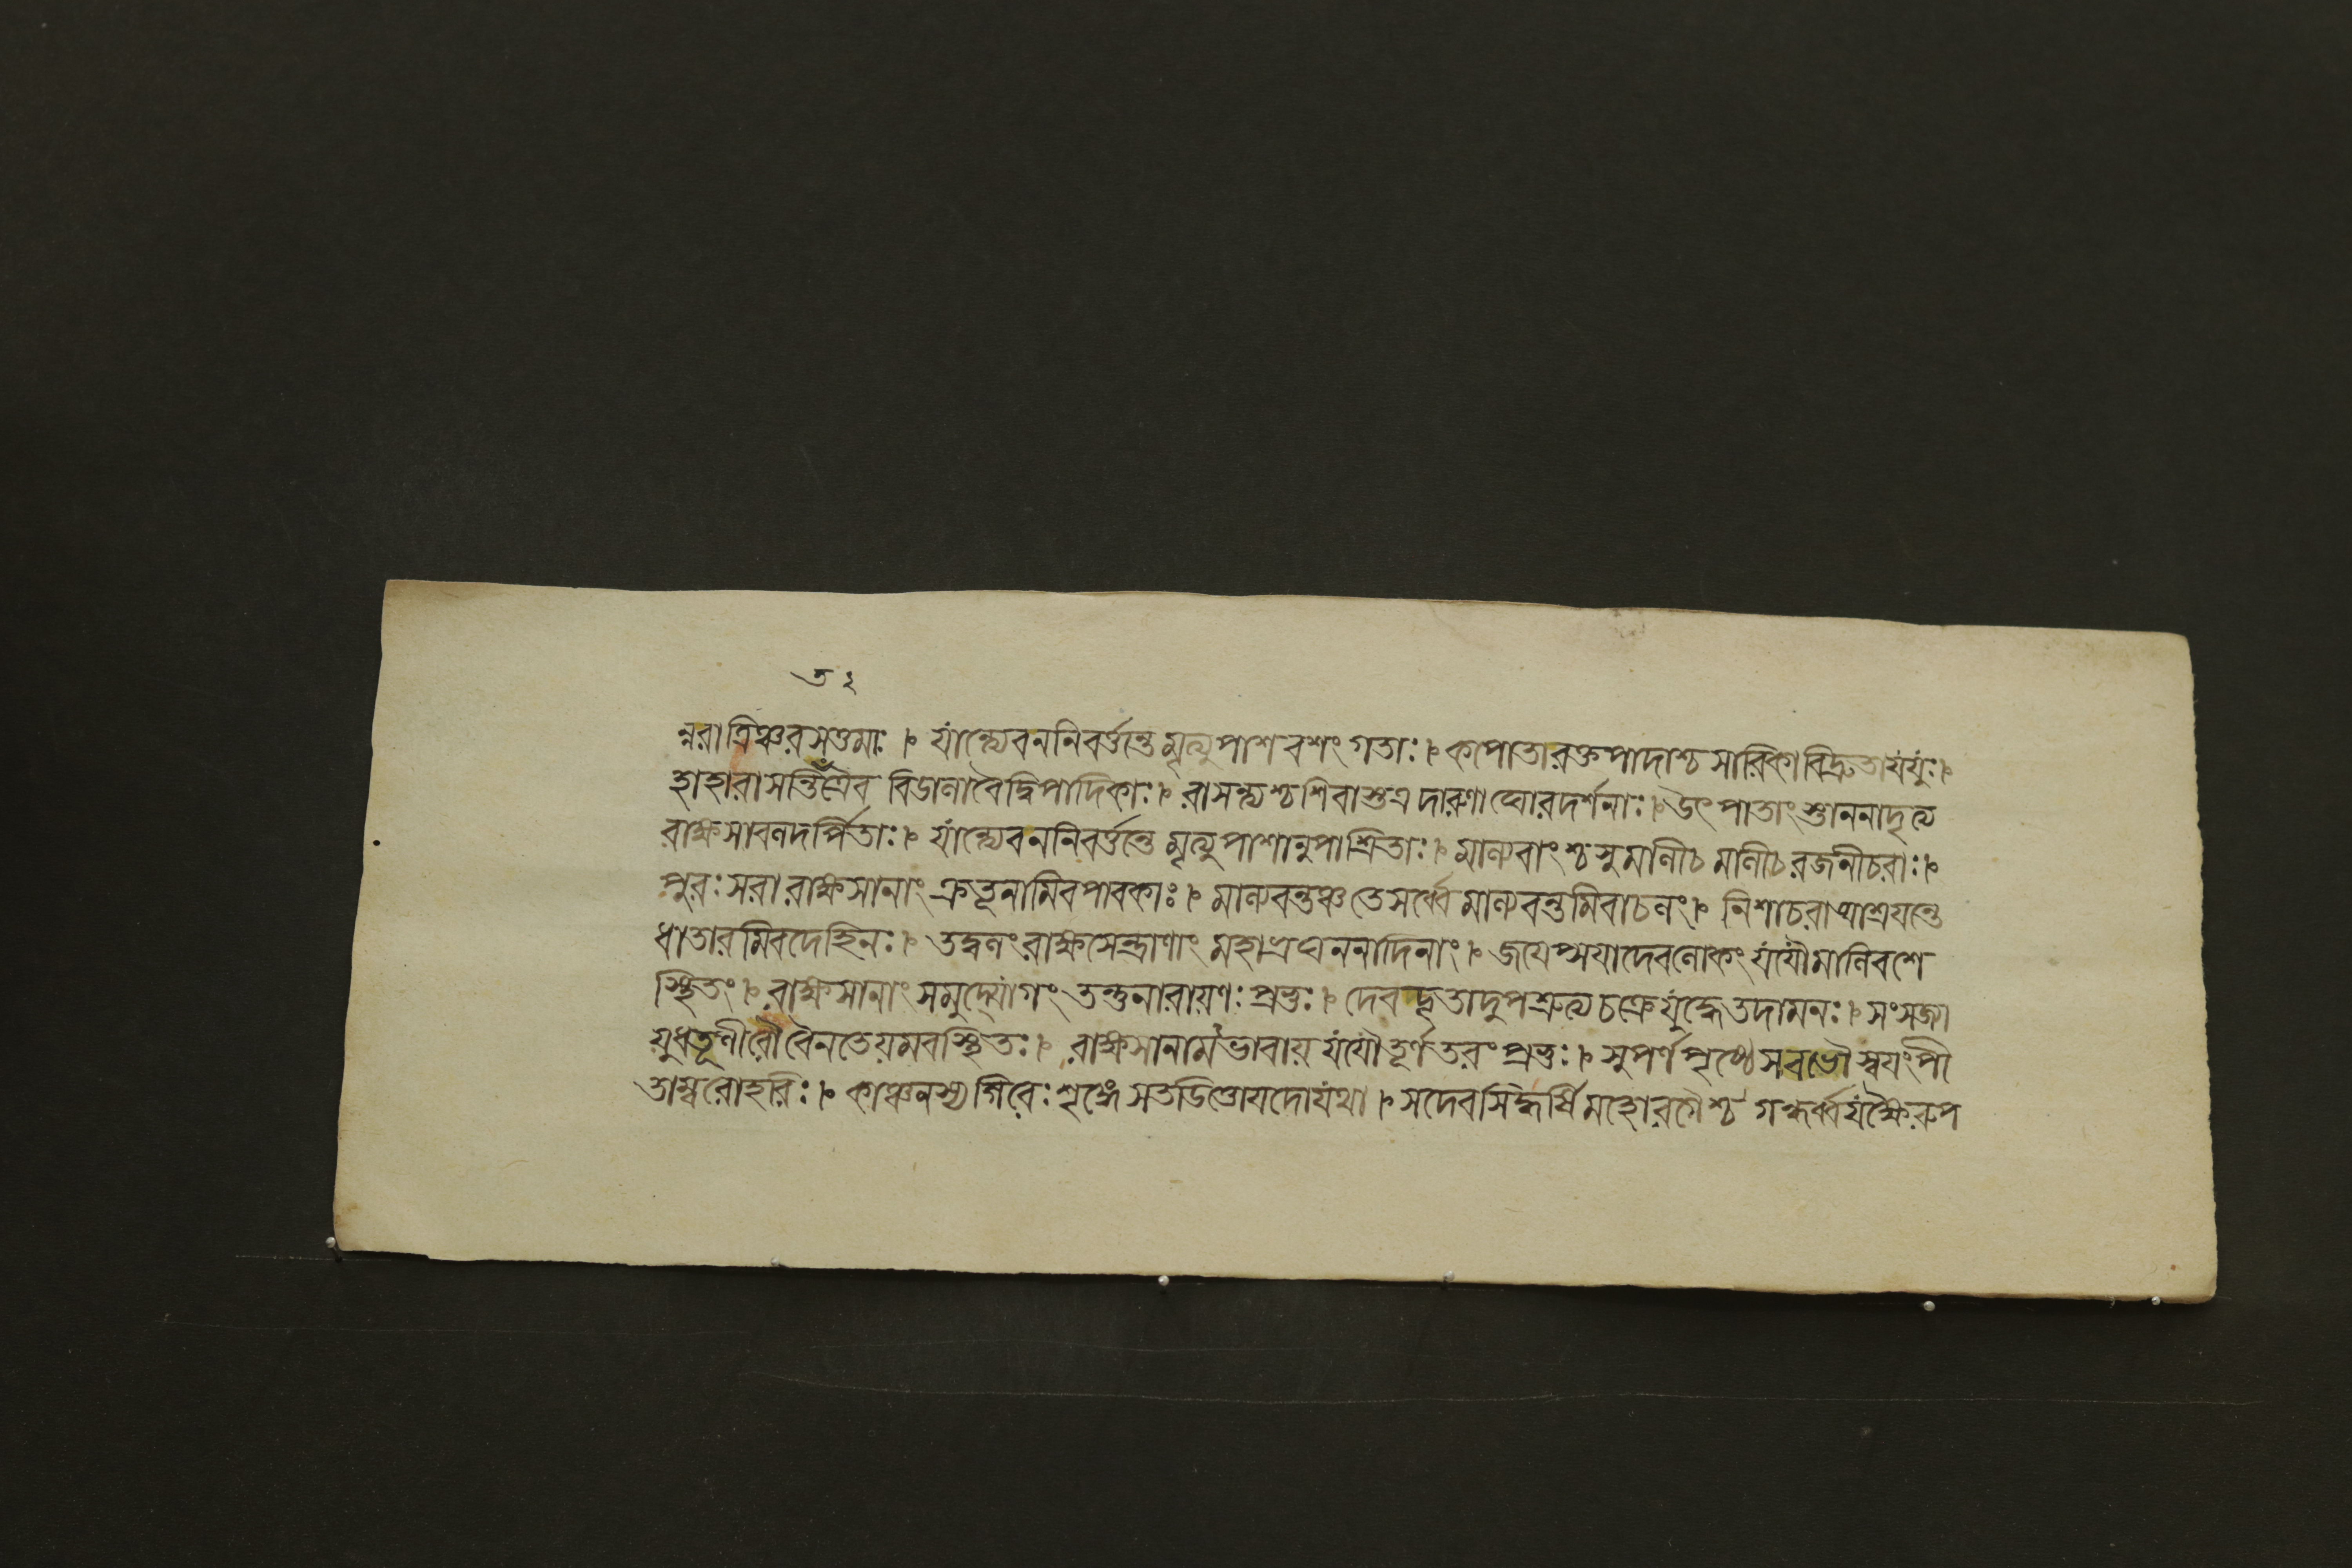 ৩২
ন্নরাত্রিঞ্চরসত্তমাঃ । যান্ত্যেবননিবর্ত্তন্তে মৃত্যুপাশবশংগতাঃ । কপোতারক্তপাদাশ্চ সারিকাবিদ্রুতাযযুঃ ।
হাহারাসন্তি তত্রৈব বিডালাবৈদ্বিপাদিকাঃ । বাসন্ত্যশ্চশিবাস্তত্র দারুণাঘোরদর্শনাঃ । উৎপাতাংস্তাননাদৃত্য
রাক্ষসাবলদর্পিতাঃ । যান্ত্যেবননিবর্ত্তন্তে মৃত্যুপাশানুপাশ্রিতাঃ । মাল্যবাংশ্চ সুমালীচ মালীচরজনীচরাঃ ।
পুরঃসরা রাক্ষসানাং ক্রতূনামিবপাবকাঃ । মাল্যবন্তঞ্চতেসর্ব্বে মাল্যবন্তমিবাচলং । নিশাচরাআশ্রযন্তে
ধাতারমিবদেহিনঃ । তদ্বলংরাক্ষসেন্দ্রাণাং মহাভ্রঘননাদিনাং । জযেপ্সযাদেবলোকং যযৌমালিবশে
স্থিতং । রাক্ষসানাংসমুদ্যোগং তন্তুনারায়ণঃ প্রভুঃ । দেবদূতাদুপশ্রুত্য চক্রে যুদ্ধেতদামনঃ । সংসজ্জা
য়ুধতূণীরৌ বৈনতেয়মবস্থিতঃ । রাক্ষসানামভাবায় যযৌতূর্ণতরংপ্রভুঃ । সুপর্ণপৃষ্ঠে সবভৌস্বযংপী
তাম্বরোহরিঃ । কাঞ্চনস্যগিরেঃ শৃঙ্গে সতডিত্তোযদোযথা । সদেবসিদ্ধর্ষিমহোরগৈশ্চ গন্ধর্ব্বযক্ষৈরুপ